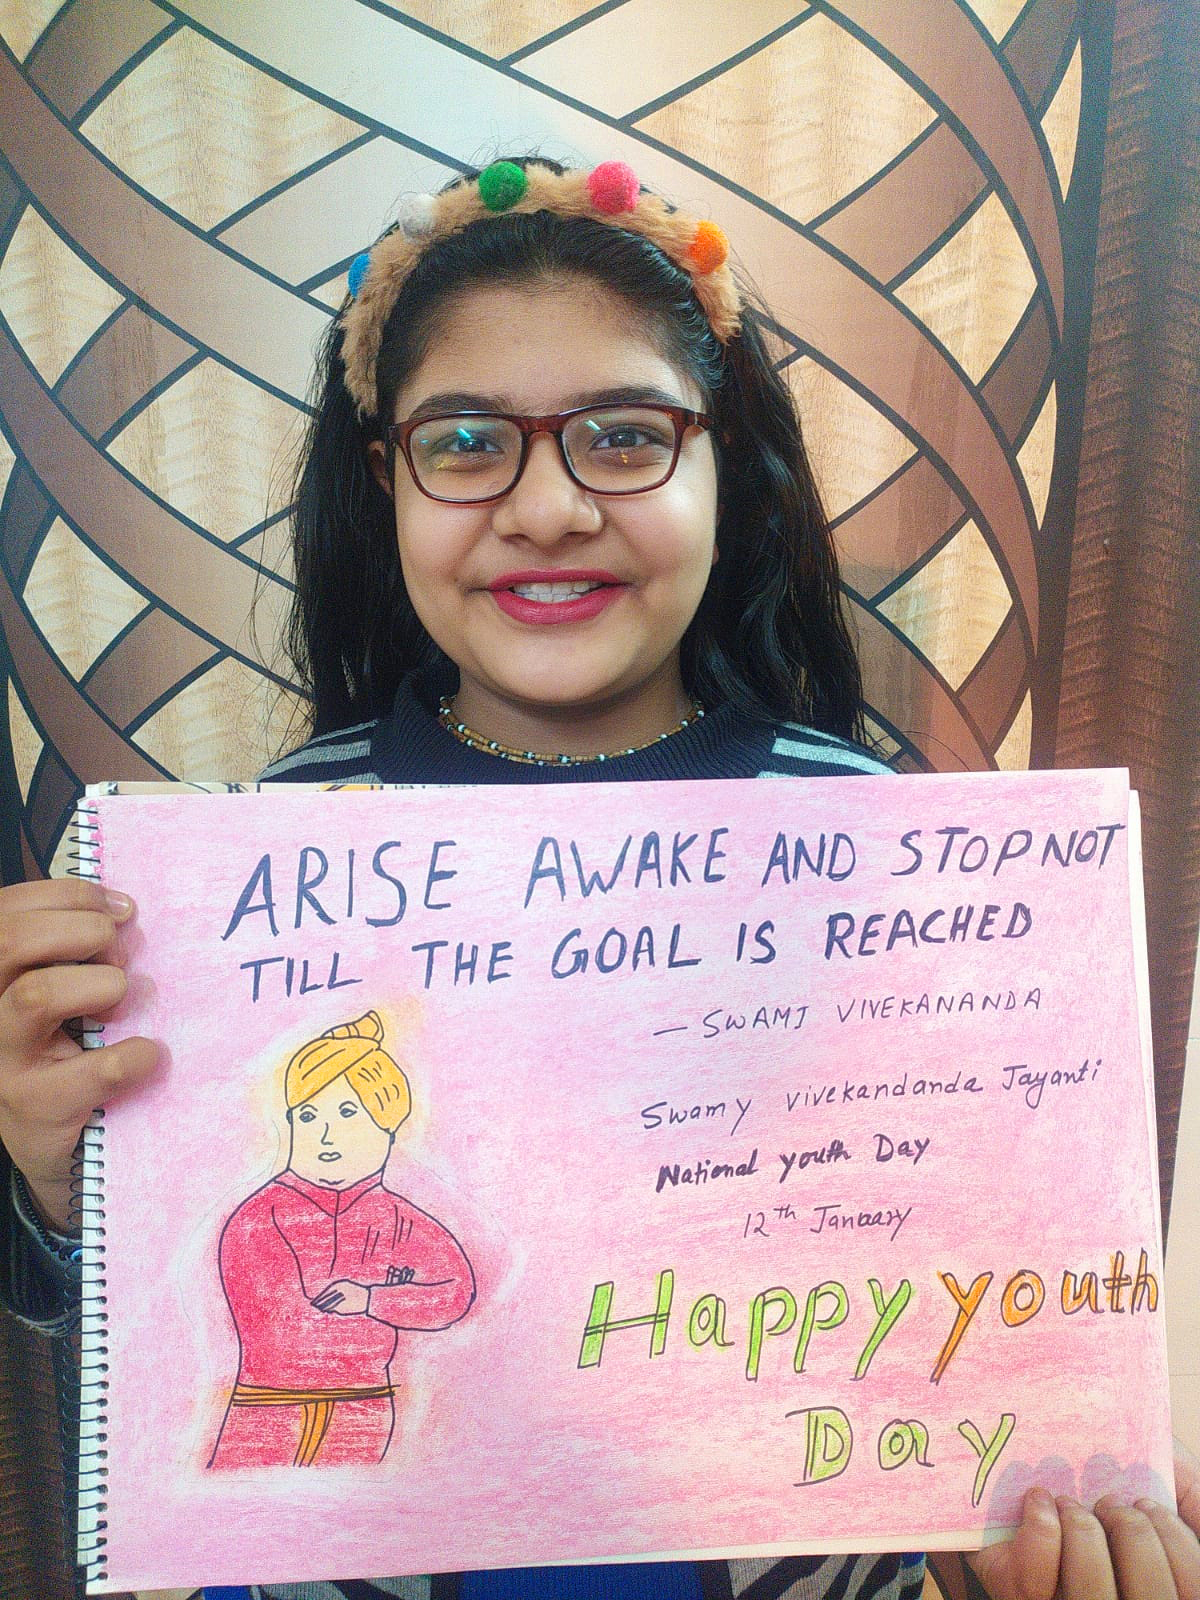 ARISE AWAKE AND STOP NOT
TILL THE GOAL IS REACHED
— SWAMI VIVEKANANDA
Swamy vivekandanda Jayanti
National youth Day
12th January
Happy youth
Day